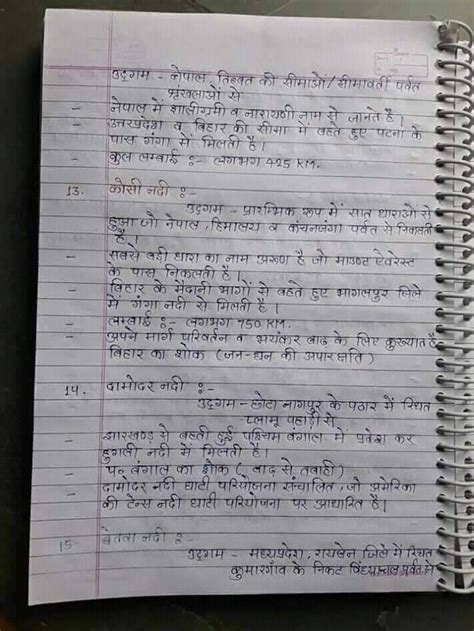 उद्गम - नेपाल, तिब्बत की सीमाओं/सीमावर्ती पर्वत
श्रृंखलाओं से
- नेपाल में शालीग्रामी व नारायणी नाम से जानते है।
- उत्तरप्रदेश व बिहार की सीमा में बहते हुए पटना के
पास गंगा में मिलती है।
- कुल लम्बाई :- लगभग 425 KM.
13. कोसी नदी :-
उद्गम - प्रारम्भिक रूप में सात धाराओं से
हुआ जो नेपाल, हिमालय व कंचनजंगा पर्वत से निकलती
है।
- सबसे बड़ी धारा का नाम अरूण है जो माउण्ट ऐवरेस्ट
के पास निकलती है।
- बिहार के मैदानी भागों से बहते हुए भागलपुर जिले
में गंगा नदी से मिलती है।
- लम्बाई :- लगभग 730 KM.
- अपने मार्ग परिवर्तन व भयंकर बाढ़ के लिए कुख्यात है
बिहार का शोक (जन-धन की अपार क्षति)
14. दामोदर नदी :-
उद्गम - छोटा नागपुर के पठार में स्थित
पलामू पहाड़ी से
- झारखण्ड से बहती हुई पश्चिम बंगाल में प्रवेश कर
हुगली नदी में मिलती है।
- प० बंगाल का शोक (बाढ़ से तबाही)
- दामोदर नदी घाटी परियोजना संचालित, जो अमेरिका
की टेन्स नदी घाटी परियोजना पर आधारित है।
15. बेतवा नदी :-
उद्गम - मध्यप्रदेश, रायसेन जिले में स्थित
कुमारगाँव के निकट विंध्याचल पर्वत से